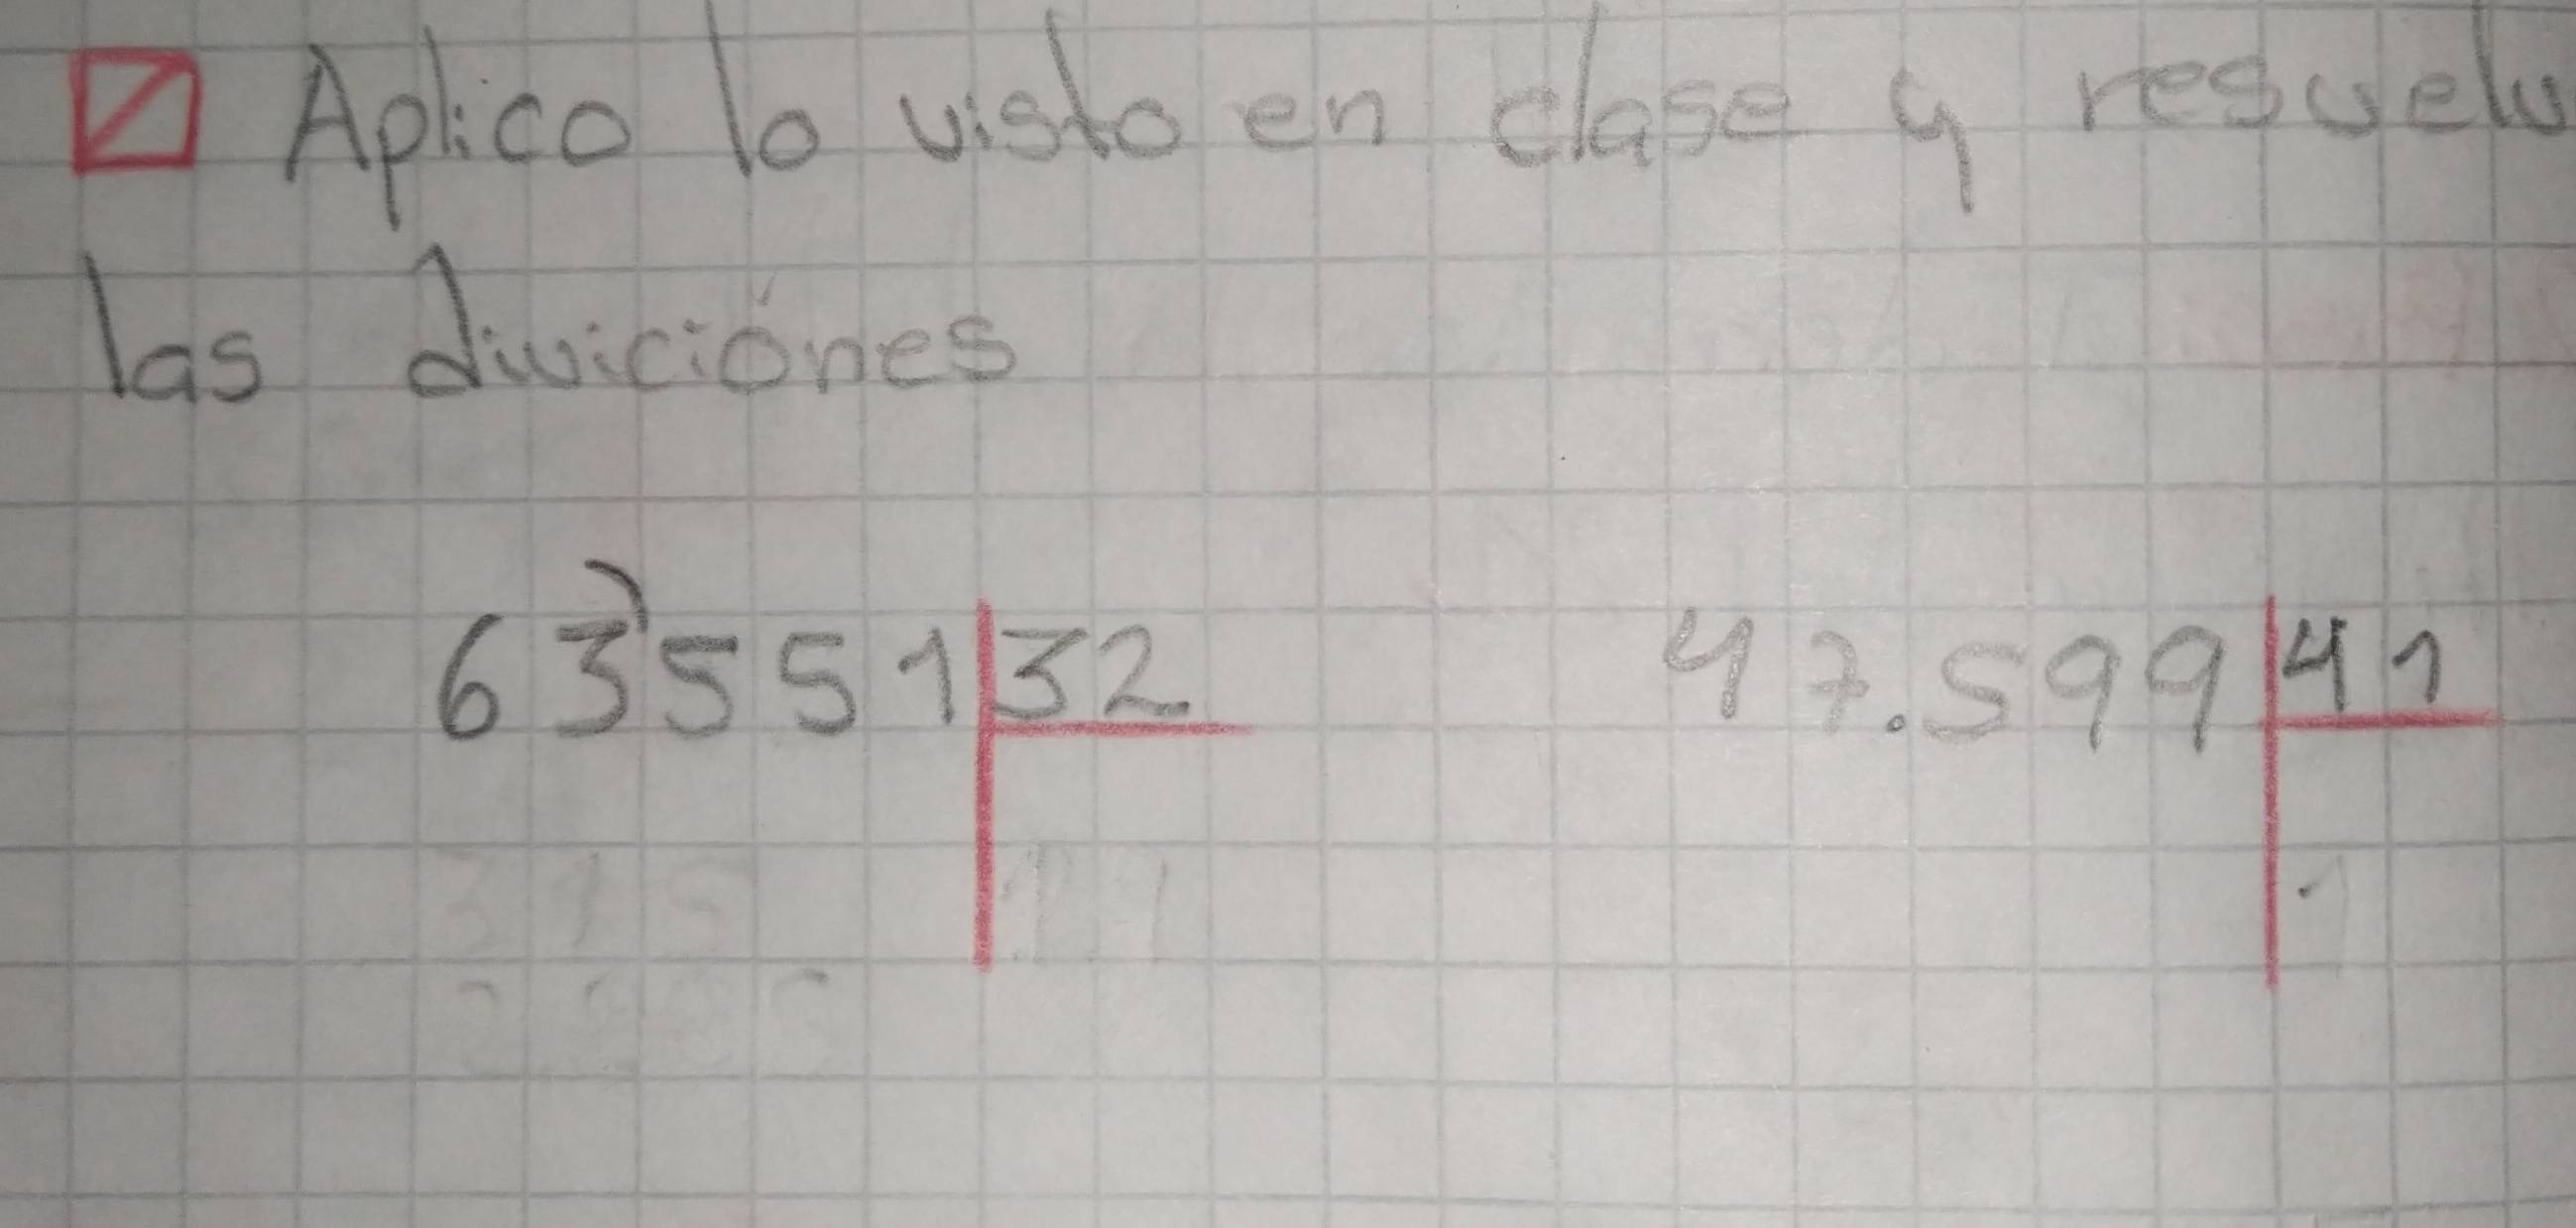 Aplico lo visto en clase y resuelv
las diviciónes
63551 32
47.599 41